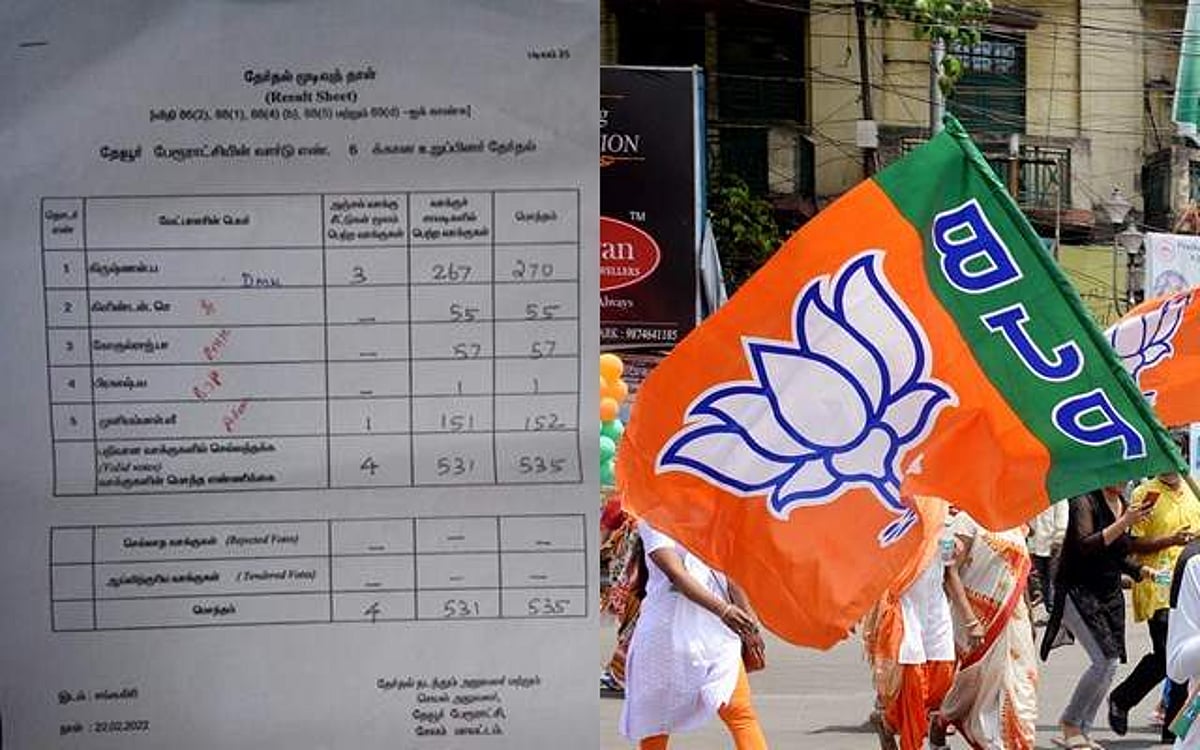 படிவம் 25
தேர்தல் முடிவுத் தாள்
(Result Sheet)
[விதி 86(2), 88(1), 88(4) (b), 88(5) மற்றும் -ஐக் காண்க]
தேவூர் பேரூராட்சியின் வார்டு எண். 6 க்கான உறுப்பினர் தேர்தல்
தொடர் எண் வேட்பாளரின் பெயர் அஞ்சல் வாக்கு சீட்டுகள் மூலம் பெற்ற வாக்குகள் வாக்குச் சாவடிகளில் பெற்ற வாக்குகள் மொத்தம்
1 கிருஷ்ணன்.ப Dmk 3 267 270
2 55 55
3 57 57
4 பிரகாஷ்.ம BJP 1 1
5 Admk 1 151 152
பதிவான வாக்குகளில் செல்லத்தக்க
(Valid votes)
வாக்குகளின் மொத்த எண்ணிக்கை 4 531 535
செல்லாத வாக்குகள் (Rejected Votes)
ஆய்விற்குரிய வாக்குகள் (Tendered Votes)
மொத்தம் 4 531 535
இடம் :
நாள் : 22.02.2022
தேர்தல் நடத்தும் அலுவலர் மற்றும்
செயல் அலுவலர்,
தேவூர் பேரூராட்சி,
சேலம் மாவட்டம்.
ION
TM
an
WELLERS
Always
PARK : 9874641185
BJP